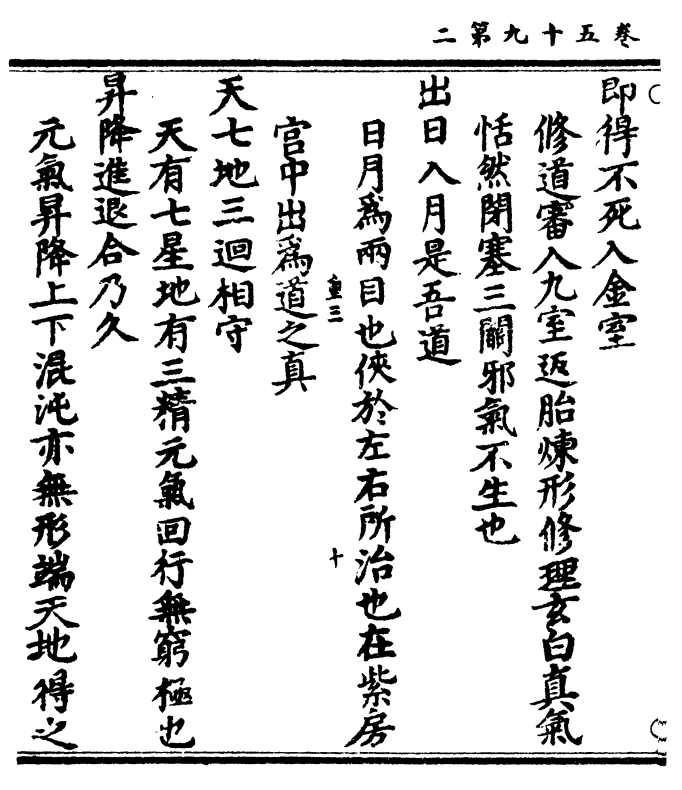 卷五十九第二
即得不死入金室
修道審入九室返胎煉形修理玄白真氣
恬然閉塞三關邪氣不生也
出日入月是吾道
日月爲兩目也俠於左右所治也在紫房
重三
十
宮中出爲道之真
天七地三迴相守
天有七星地有三精元氣回行無窮極也
昇降進退合乃久
元氣昇降上下混沌亦無形端天地得之